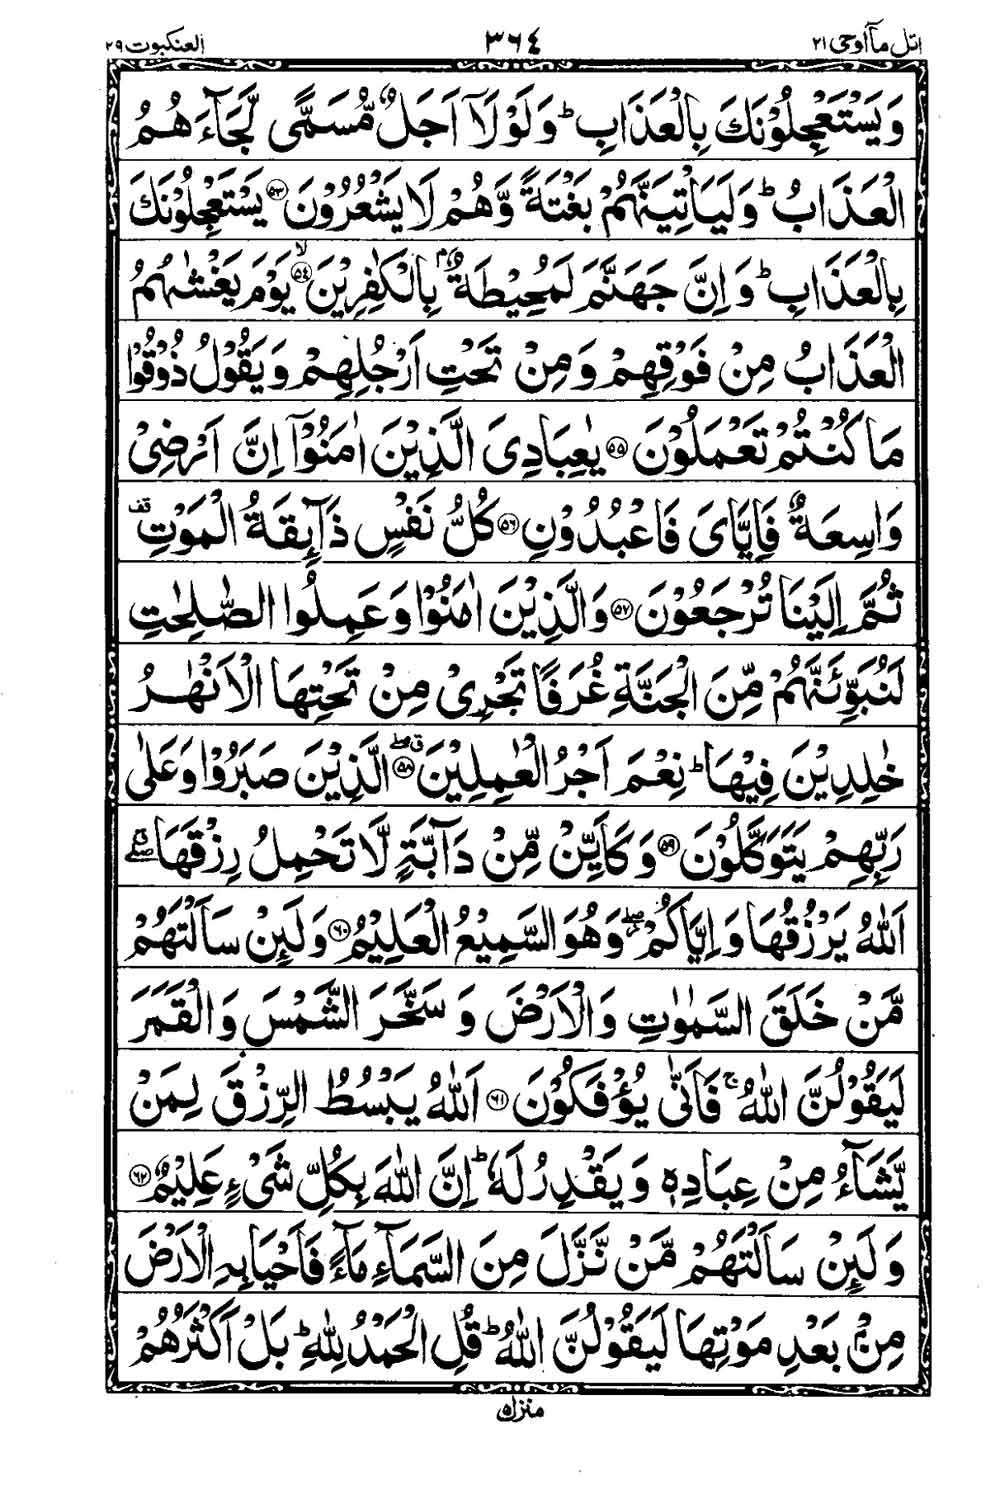 اتل مآ اوحی ۲۱ ۳۶۴ العنکبوت ۲۹
وَيَسْتَعْجِلُوْنَكَ بِالْعَذَابِ ؕ وَلَوْلَاۤ اَجَلٌ مُّسَمًّى لَّجَآءَهُمُ
الْعَذَابُ ؕ وَلَيَاْتِيَنَّهُمْ بَغْتَةً وَّهُمْ لَا يَشْعُرُوْنَ ۵۳ يَسْتَعْجِلُوْنَكَ
بِالْعَذَابِ ؕ وَاِنَّ جَهَنَّمَ لَمُحِيْطَةٌۢ بِالْكٰفِرِيْنَ ۙ ۵۴ يَوْمَ يَغْشٰىهُمُ
الْعَذَابُ مِنْ فَوْقِهِمْ وَمِنْ تَحْتِ اَرْجُلِهِمْ وَيَقُوْلُ ذُوْقُوْا
مَا كُنْتُمْ تَعْمَلُوْنَ ۵۵ يٰعِبَادِىَ الَّذِيْنَ اٰمَنُوْۤا اِنَّ اَرْضِىْ
وَاسِعَةٌ فَاِيَّاىَ فَاعْبُدُوْنِ ۵۶ كُلُّ نَفْسٍ ذَآٮِٕقَةُ الْمَوْتِ قف
ثُمَّ اِلَيْنَا تُرْجَعُوْنَ ۵۷ وَالَّذِيْنَ اٰمَنُوْا وَعَمِلُوا الصّٰلِحٰتِ
لَنُبَوِّئَنَّهُمْ مِّنَ الْجَنَّةِ غُرَفًا تَجْرِىْ مِنْ تَحْتِهَا الْاَنْهٰرُ
خٰلِدِيْنَ فِيْهَا ؕ نِعْمَ اَجْرُ الْعٰمِلِيْنَ ۖ ۵۸ الَّذِيْنَ صَبَرُوْا وَعَلٰى
رَبِّهِمْ يَتَوَكَّلُوْنَ ۵۹ وَكَاَيِّنْ مِّنْ دَآبَّةٍ لَّا تَحْمِلُ رِزْقَهَا ۖ
اَللّٰهُ يَرْزُقُهَا وَاِيَّاكُمْ ۖ وَهُوَ السَّمِيْعُ الْعَلِيْمُ ۶۰ وَلَٮِٕنْ سَاَلْتَهُمْ
مَّنْ خَلَقَ السَّمٰوٰتِ وَالْاَرْضَ وَ سَخَّرَ الشَّمْسَ وَالْقَمَرَ
لَيَقُوْلُنَّ اللّٰهُ ۚ فَاَنّٰى يُؤْفَكُوْنَ ۶۱ اَللّٰهُ يَبْسُطُ الرِّزْقَ لِمَنْ
يَّشَآءُ مِنْ عِبَادِهٖ وَيَقْدِرُ لَهٗ ؕ اِنَّ اللّٰهَ بِكُلِّ شَىْءٍ عَلِيْمٌ ۶۲
وَلَٮِٕنْ سَاَلْتَهُمْ مَّنْ نَّزَّلَ مِنَ السَّمَآءِ مَآءً فَاَحْيَا بِهِ الْاَرْضَ
مِنْۢ بَعْدِ مَوْتِهَا لَيَقُوْلُنَّ اللّٰهُ ؕ قُلِ الْحَمْدُ لِلّٰهِ ؕ بَلْ اَكْثَرُهُمْ
منزل ۵